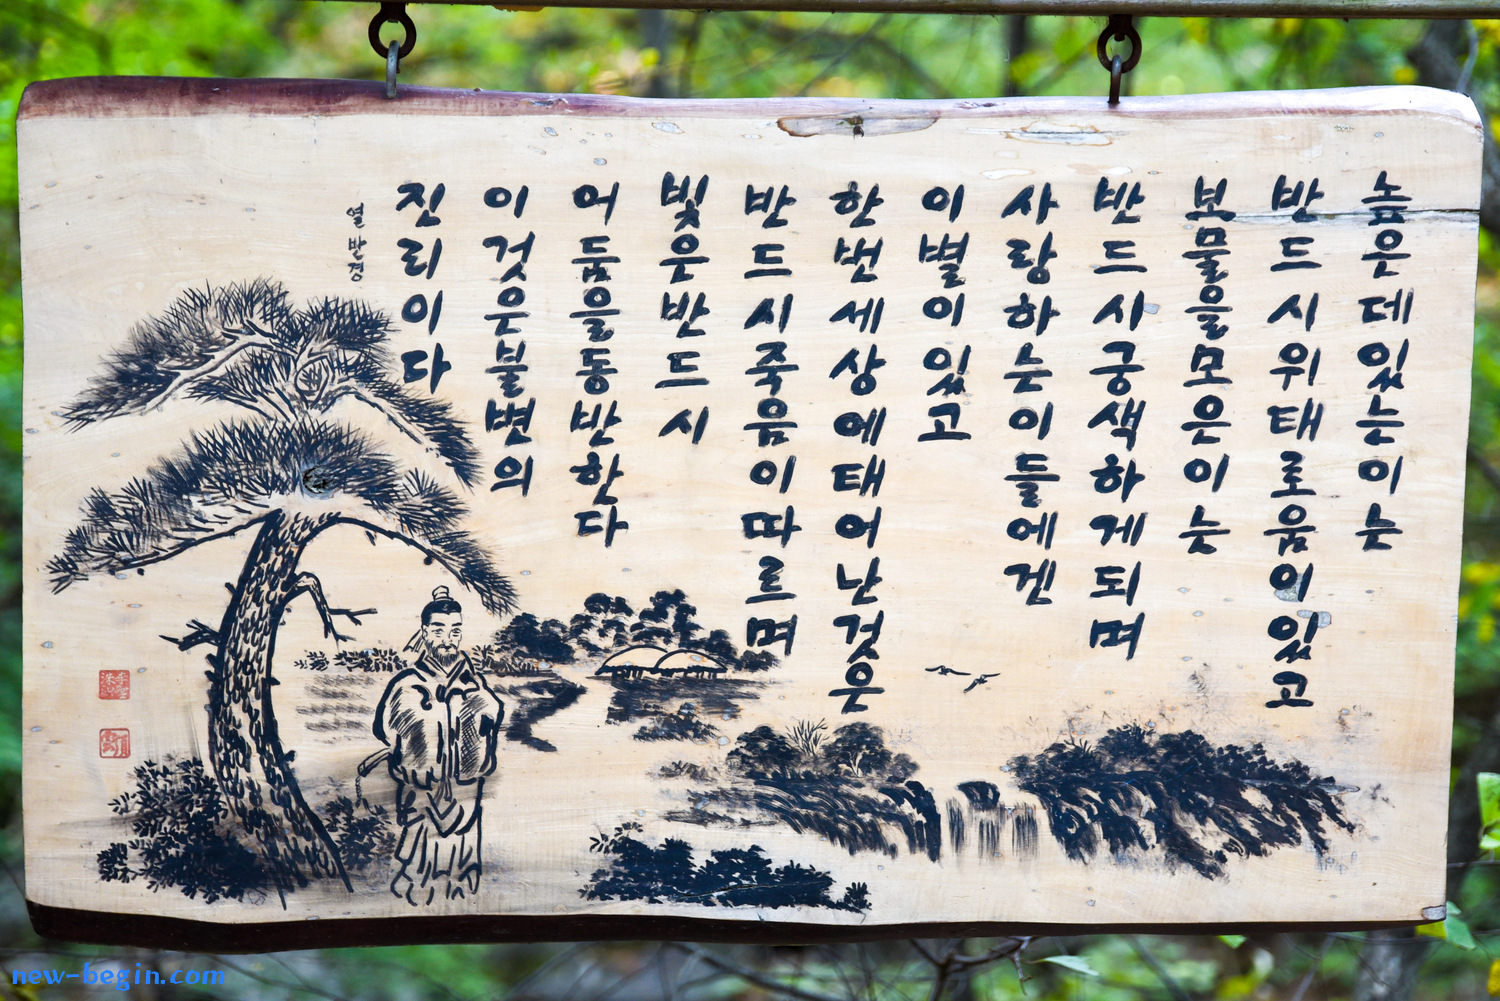 높은데있는이는
반드시위태로움이있고
보물을모은이는
반드시궁색하게되며
사랑하는이들에겐
이별이있고
한번세상에태어난것은
반드시죽음이따르며
빛은반드시
어둠을동반한다
이것은불변의
진리이다
열반경
new-begin.com